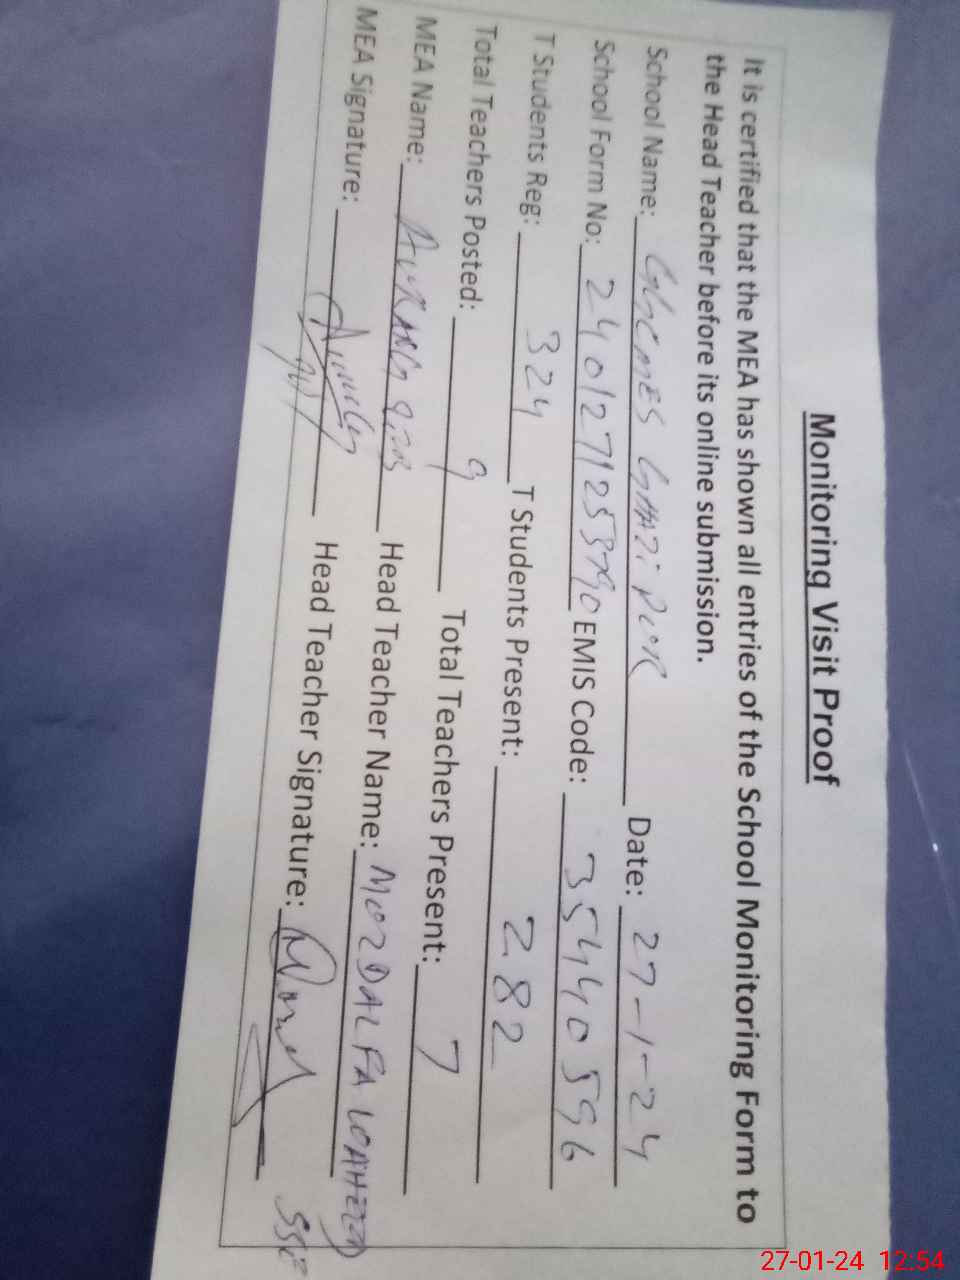 Monitoring Visit Proof
It is certified that the MEA has shown all entries of the School Monitoring Form to
the Head Teacher before its online submission.
School Name: GHAZI PUR Date: 27-1-24
School Form No: EMIS Code: 35440596
T Students Reg: 324 T Students Present: 282
Total Teachers Posted: 9 Total Teachers Present: 7
MEA Name: Head Teacher Name:
MEA Signature: Head Teacher Signature:
27-01-24 12:54